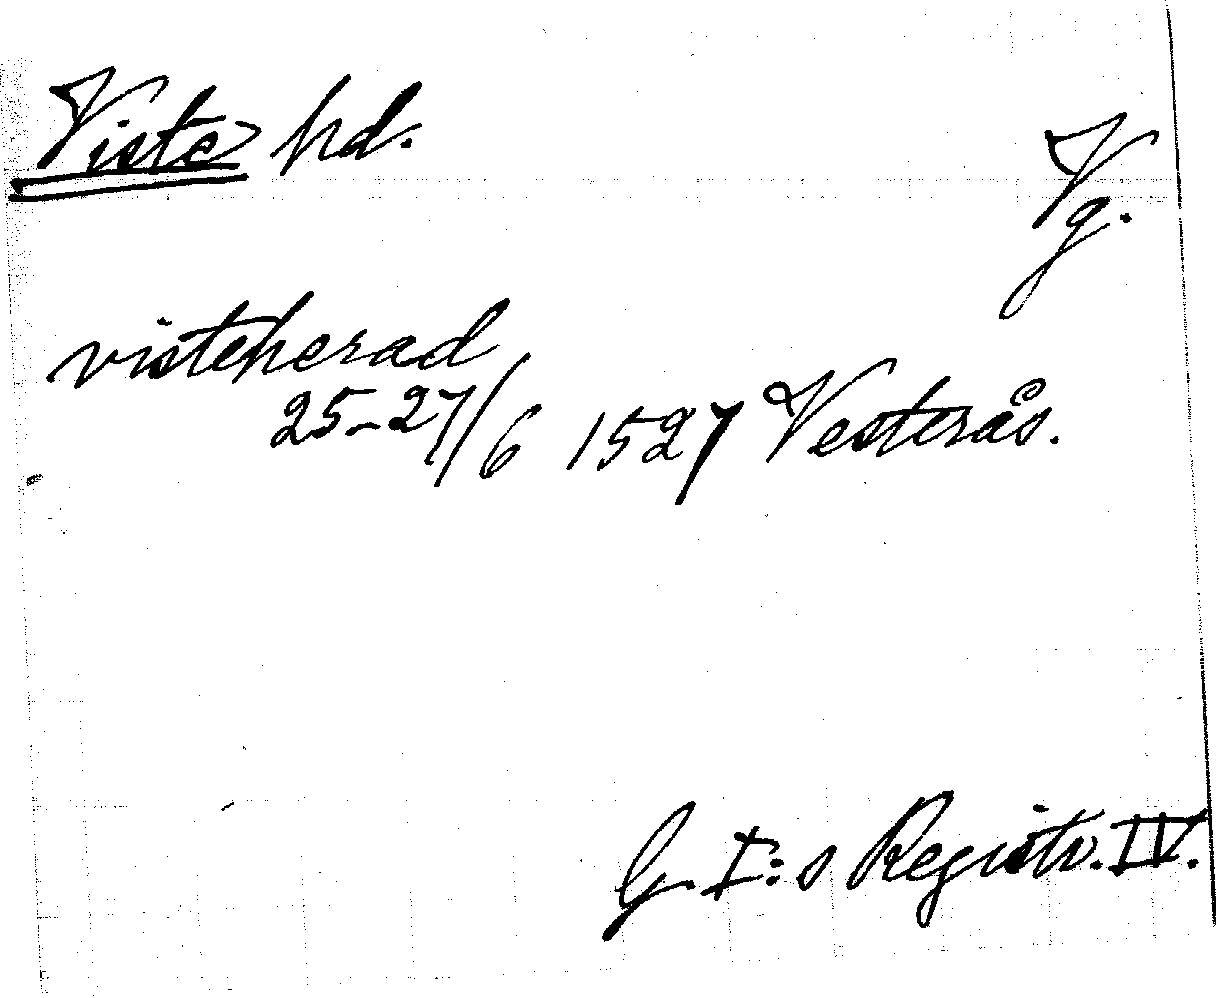 Viste hd.
Vg.
visteherad
25-27/6 1527 Vesterås.
G. I:s Registr. IV.